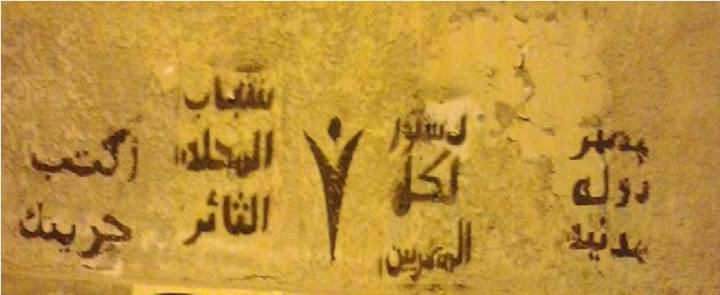 مصر
دوله
مدنيه
دستور
لكل
المصريين
شباب
المحله
الثائر
أكتب
حريتك